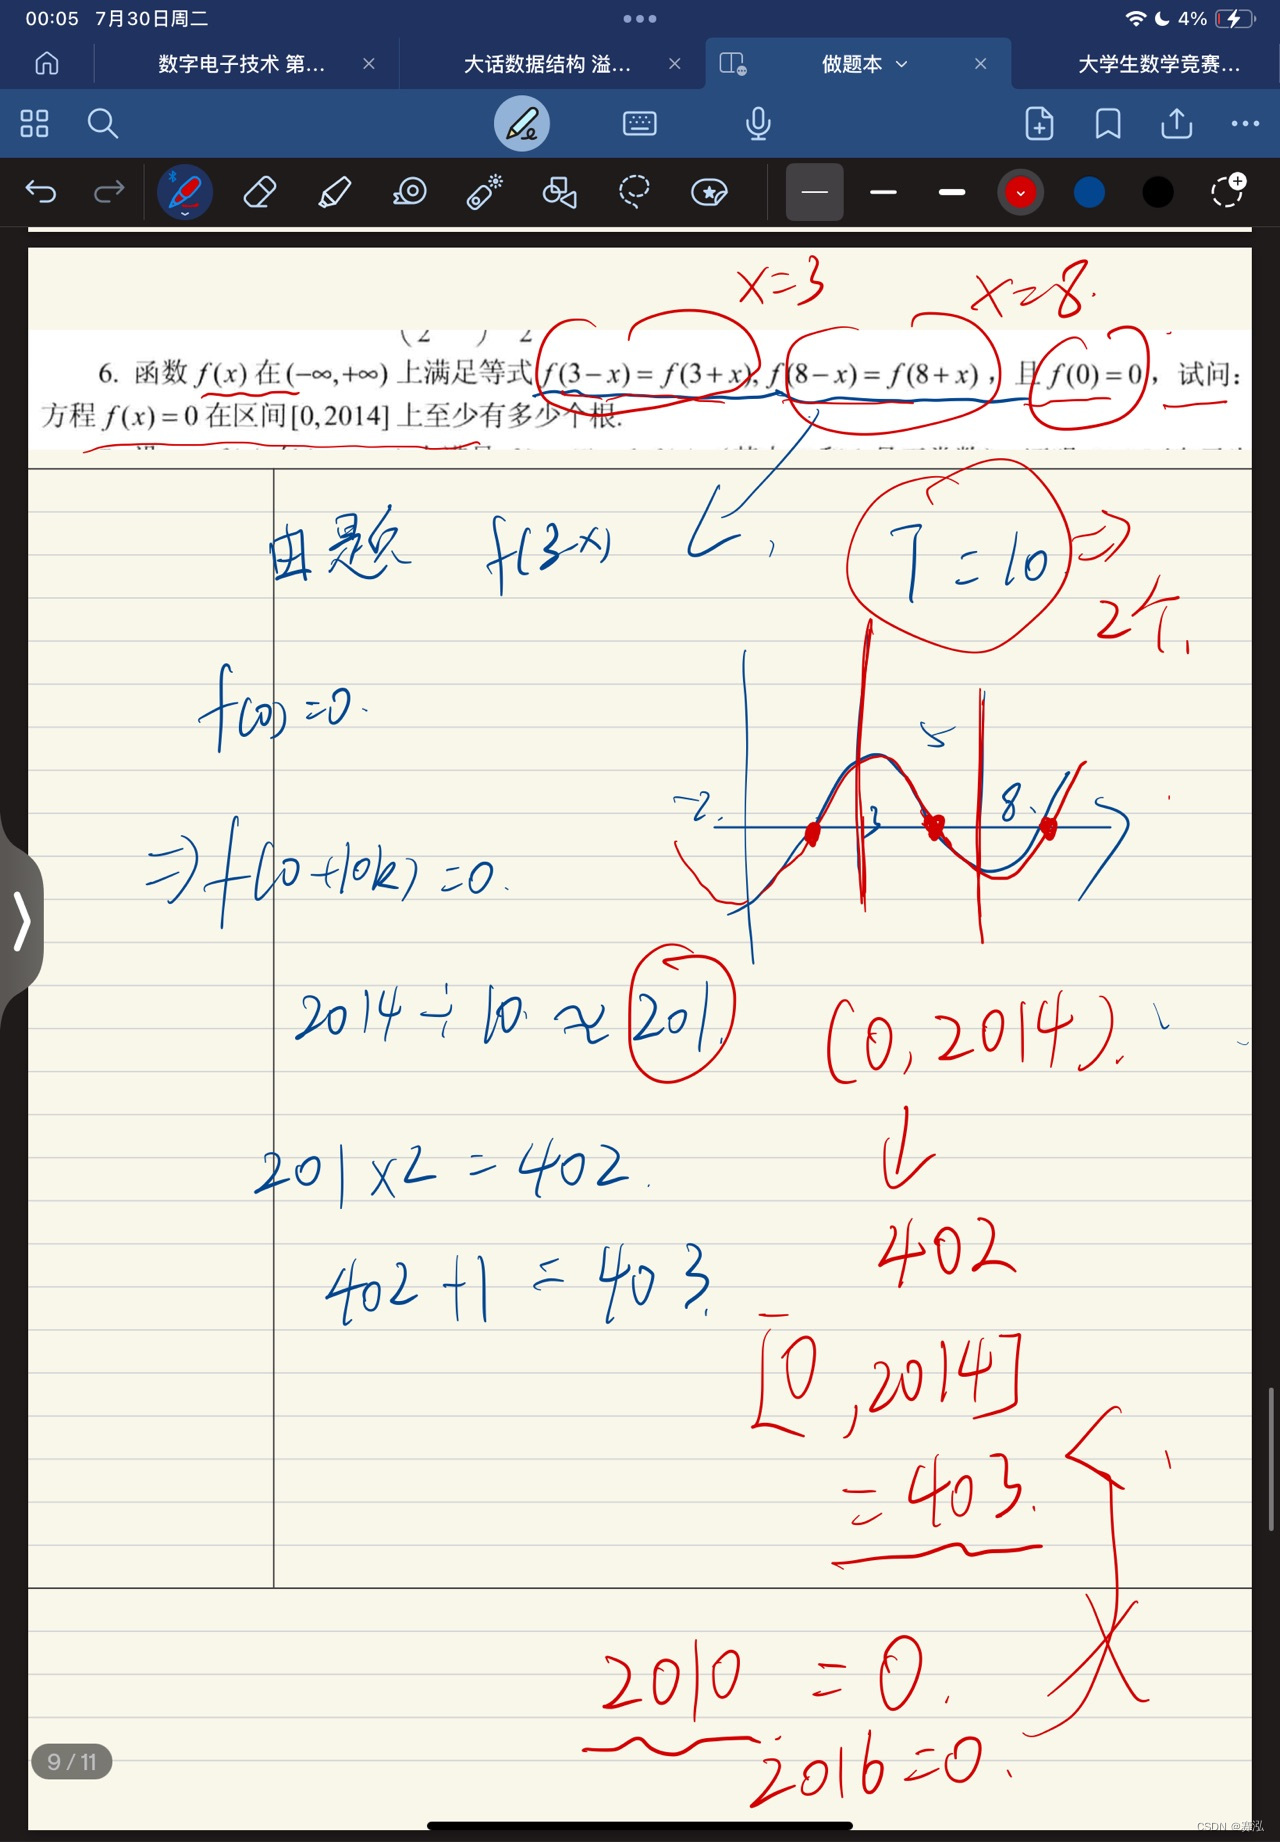 00:05 7月30日周二
4%
数字电子技术 第...
大话数据结构 溢...
做题本
大学生数学竞赛...
x=3
x=8.
6. 函数 f(x) 在(−∞,+∞) 上满足等式 f(3−x)=f(3+x), f(8−x)=f(8+x), 且 f(0)=0, 试问:
方程 f(x)=0 在区间[0,2014] 上至少有多少个根.
由题 f(3-x)
T=10 ⇒
2个.
f(0)=0.
5
-2.
3
8.
⇒f(0+10k)=0.
2014÷10≈201.
(0,2014).
201×2=402.
402
402+1=403.
[0,2014]
=403.
2010=0.
2016=0.
9 / 11